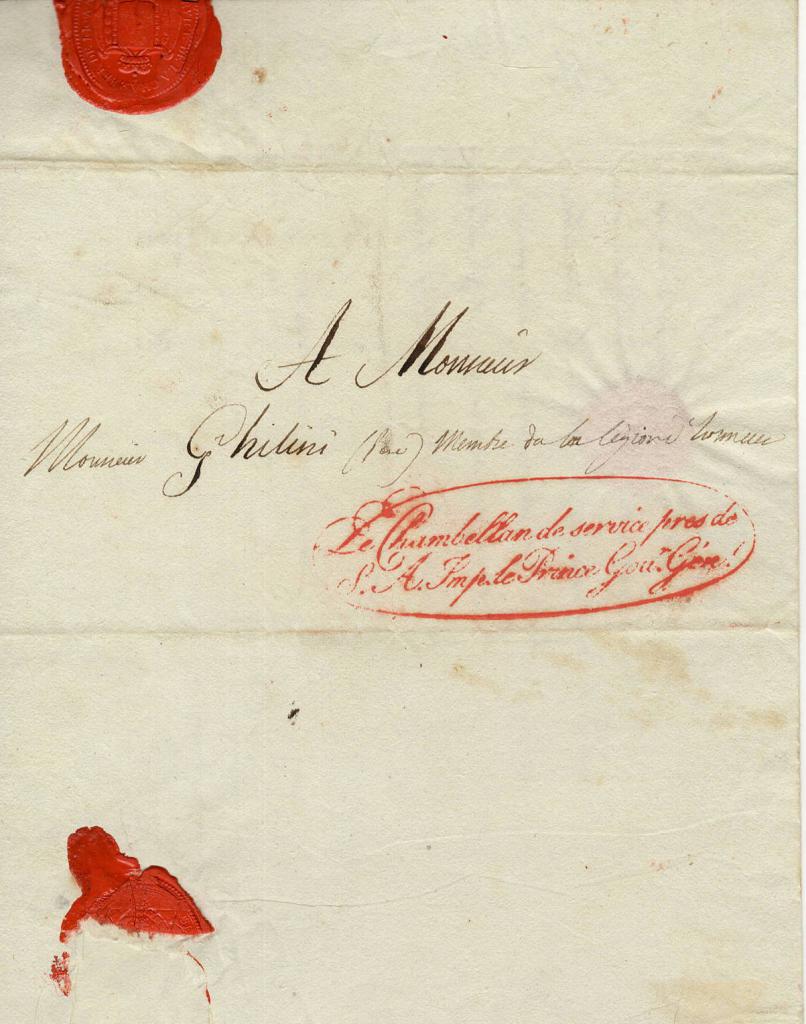 A Monsieur
Monsieur Ghilini (Père) Membre de la légion d'honneur
Le Chambellan de service pres de
S. A. Imp. le Prince Gouv.r Gén.l